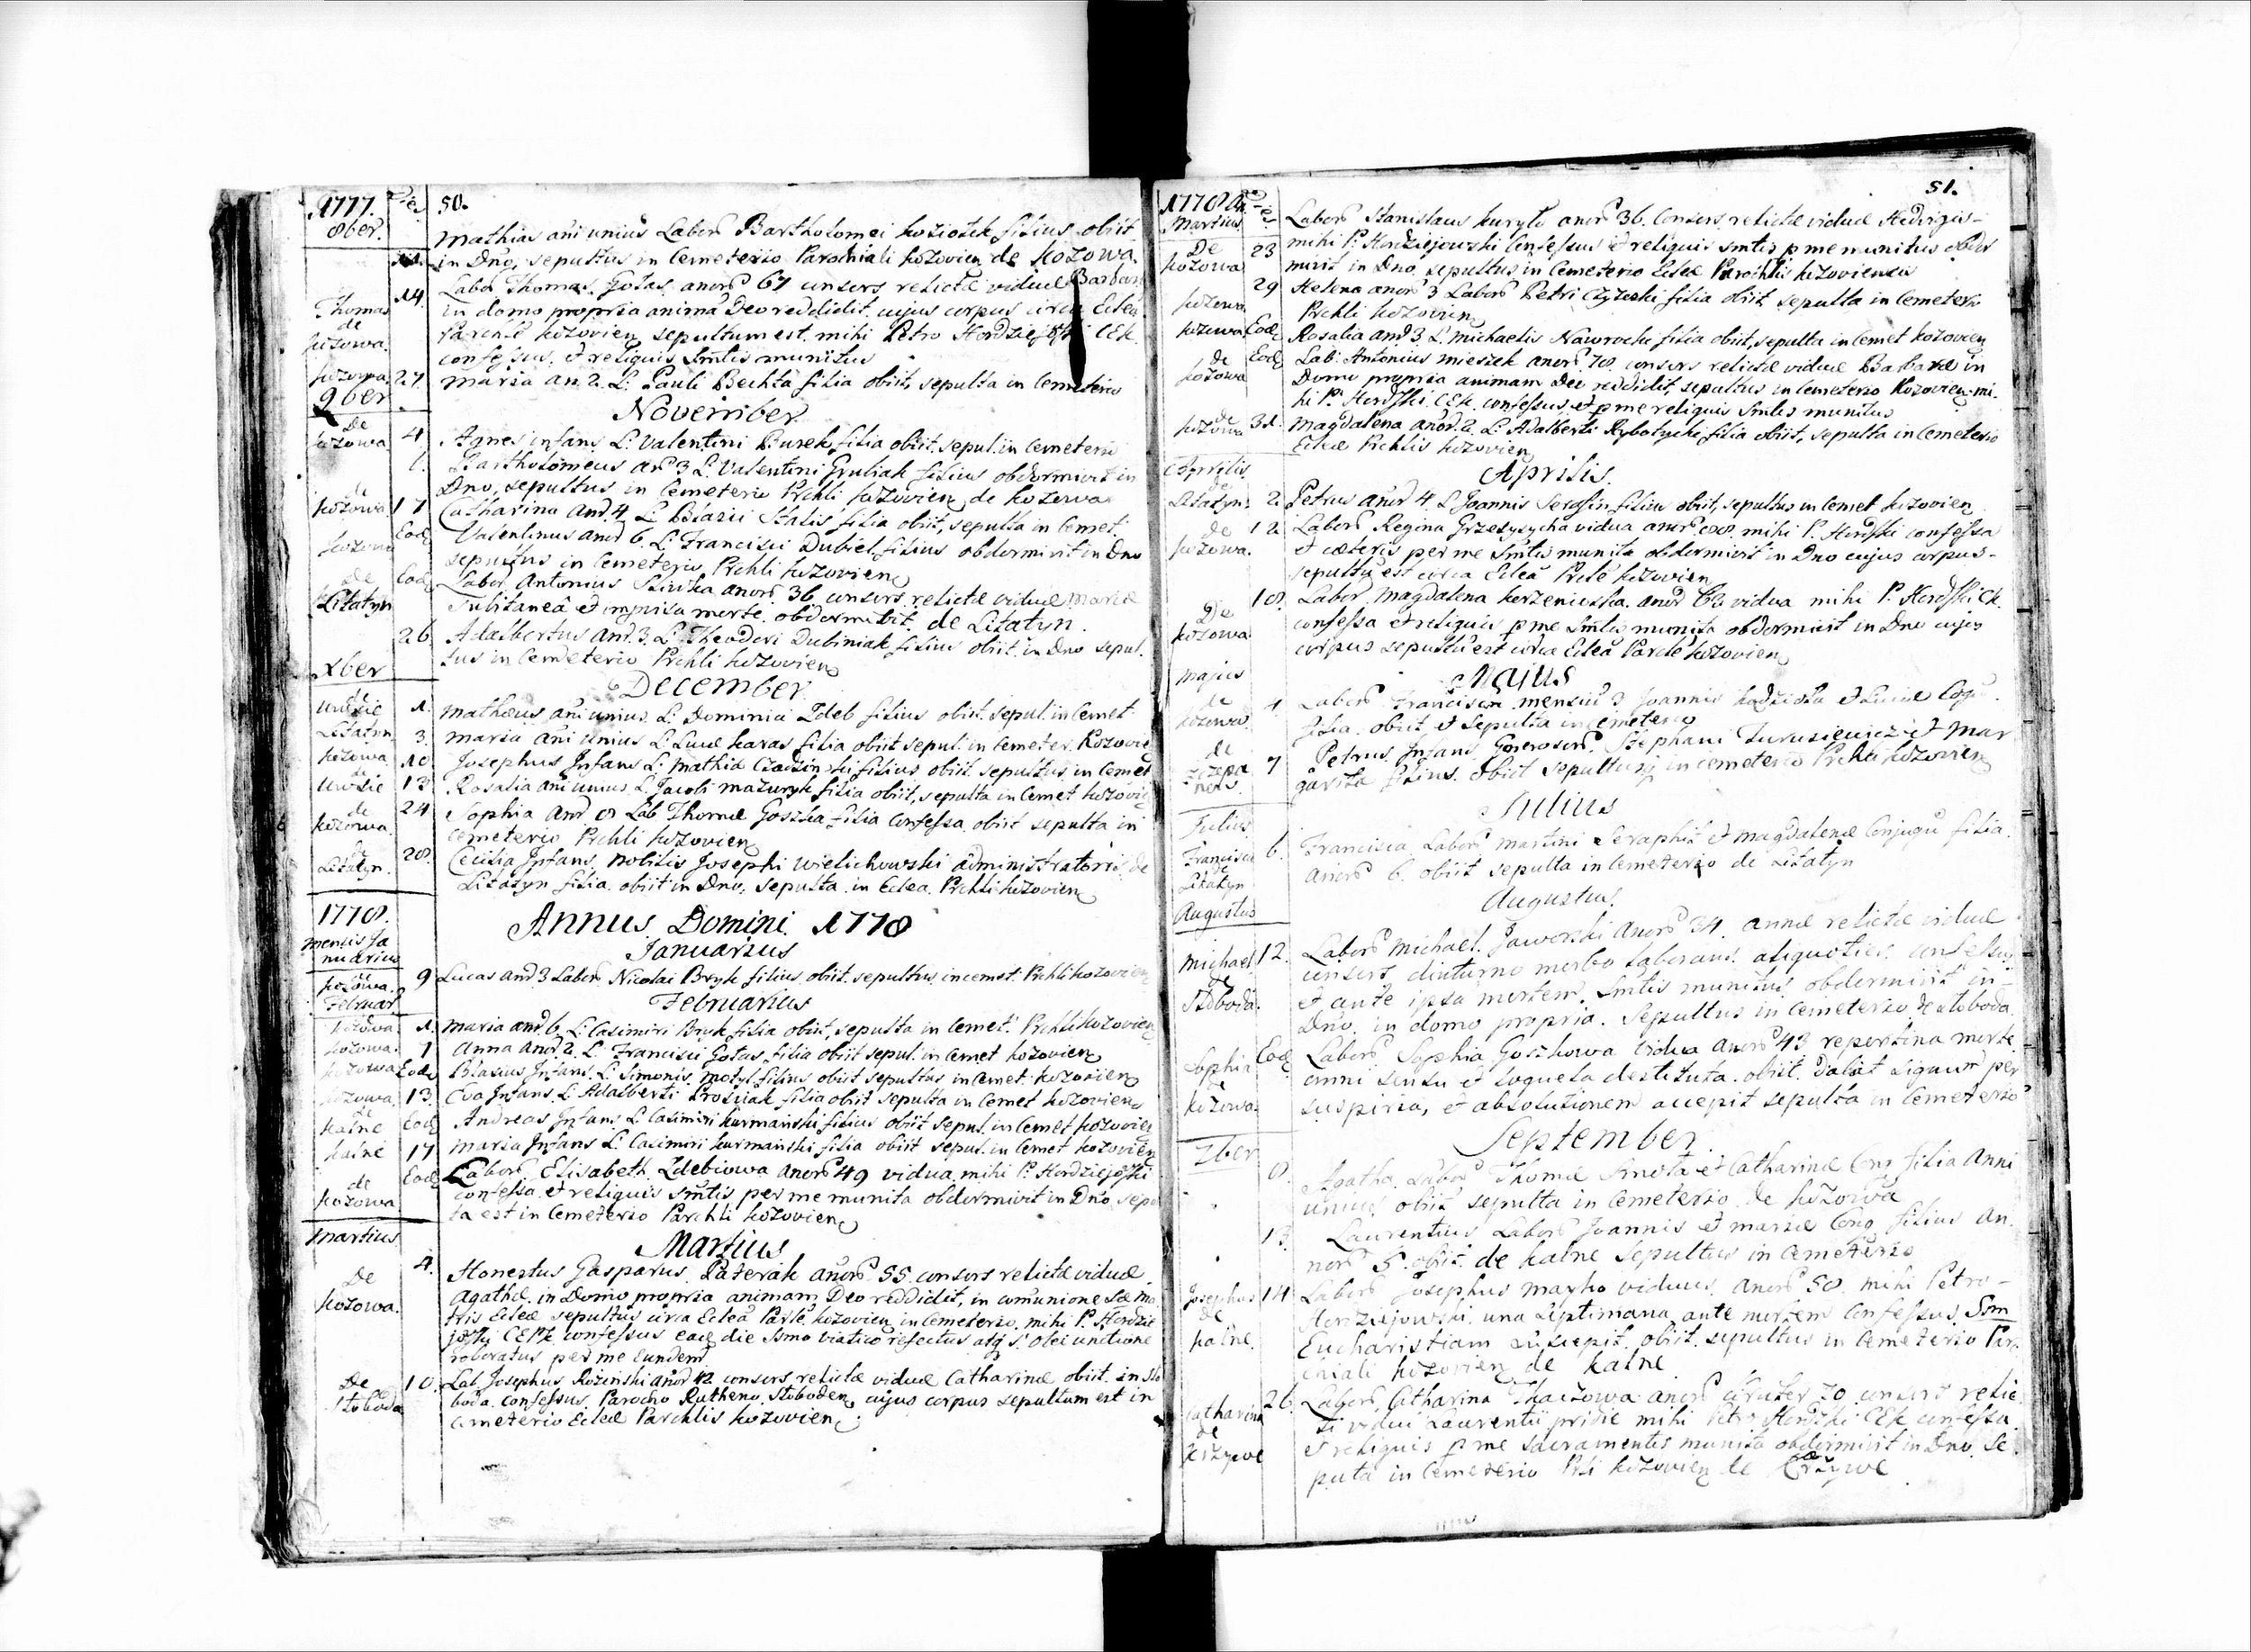 1777. 50.
8ber.
Mathias ani unius Labor Bartholomei koziołek filius obiit
in Dno, sepultus in Cemeterio Parochiali kozovien de kozowa
14. Labor Thomas Gołas anor 67 consors relictæ viduæ Barbaræ
Thomas in domo propria anima Deo reddidit cujus corpus circa Eclea
de kozowa. kozovien sepultum est. mihi Petro
confessus et reliquis Smtis munitus
kozowa 27. Maria an. 2. L: Pauli Bechta filia obiit, sepulta in Cemeterio
9ber
November
de kozowa 4 Agnes infans L: Valentini Burek filia obiit sepul. in Cemeterio
Bartholomeus an 3 L: Valentini Gruliak filius obdormivit in
Dno, sepultus in Cemeterio Prchli kozovien de kozowa
de kozowa 17 Catharina anor 4 L: Blasii Stalis filia obiit, sepulta in Cemet.
kozowa Eod Valentinus anor 6. L: Francisci Dubiel filius obdormivit in Dno
sepultus in Cemeterio Prchli kozovien
de Litatyn Eod Labor Antonius anor 36 consors relictæ viduæ Mariæ
Subitanea et improvisa morte obdormivit. de Litatyn.
26 Adalbertus anor 3 L: Theodori Dubiniak filius obiit in Dno sepul-
tus in Cemeterio Prchli kozovien
Xber
December
de Uwsie 1. Mathæus ani unius L: Dominici Zdeb filius obiit sepul. in Cemet
Litatyn 3. Maria ani unius L: Lucæ karas filia obiit sepul: in Cemeter. Kozovie
kozowa 10 Josephus Infans L: Mathiæ filius obiit. sepultus in Cemet
de Uwsie 13. Rosalia ani unius L: Jacobi Mazuryk filia obiit, sepulta in Cemet kozovie
de kozowa. 24 Sophia anor 8 Lab Thomæ Goszka filia Confessa obiit sepulta in
Cemeterio Prchli kozovien
de Litatyn. 28. Cecilia Infans Nobilis Josephi Wielichowski administratoris de
Litatyn filia obiit in Dno, sepulta in Eclea Prchli kozovien
1778.
Annus Domini 1778
Mensis Ja
nuarius
Januarius
de kozowa. 9 Lucas anor 3 Labor Nicolai Bryk filius obiit. sepultus in cemet: Prchli kozovien
Februar
Februarius
kozowa 1. Maria anor 6 L: Casimiri Bryk filia obiit, sepulta in Cemet: Prchli kozovien
kozowa. 7 Anna anor 2. L: Francisci Gołas filia obiit sepul. in Cemet kozovien
kozowa Eod Blasius Infans L: Simonis Motyl filius obiit sepultus in Cemet: kozovien
kozowa. 13. Eva Infans L: Adalberti Prosniak filia obiit sepulta in Cemet kozovien
de kalne Eod Andreas Infans L: Casimiri kurmanski filius obiit sepul. in Cemet kozovien
kalne 17 Maria Infans L: Casimiri kurmanski filia obiit sepul. in Cemet kozovien
de kozowa Eod Labor Elisabeth Zdebiowa anor 49 vidua mihi P.
confessa et reliquis Smtis per me munita obdormivit in Dno, sepul
ta est in Cemeterio Parchli kozovien
Martius
Martius
De kozowa. 4. Honestus Gasparus Paterak anor 55 consors relictæ viduæ
Agathæ, in Domo propria animam Deo reddidit, in comunione Sæ ma
tris Eclæ sepultus circa Eclea kozovien in Cemeterio. mihi P.
confessus ead die Ssmo viatico refectus atq S. Olei unctione
roboratus per me eundem
De Słoboda 10. Lab. Josephus anor 42 consors relictæ viduæ Catharinæ obiit in Sło
boda confessus Parocho Rutheno Słoboden cujus corpus sepultum est in
Cemeterio Eclæ Parchlis kozovien
1778 51.
Martius Labor Stanislaus kuryło anor 36. Consors relictæ viduæ Hedvigis
De kozowa 23 mihi P. Confessus et reliquis Smtis p me munitus obdor
mivit in Dno sepultus in Cemeterio Eclæ Parochlis kozoviensis
kozowa 29 Helena anor 3 Labor Petri filia obiit sepulta in Cemeterio
Prchli kozovien
kozowa Eod Rosalia anor 3. L: Michaelis Nawrocki filia obiit, sepulta in Cemet kozovien
de kozowa Eod Lab: Antonius Mieszek anor 70. consors relictæ viduæ Barbaræ in
Domo propria animam Deo reddidit, sepultus in Cemeterio Kozovien mi-
hi P. CEK. confessus et p me reliquis Smtis munitus
de kozowa 31. Magdalena anor 2. L: Adalberti Rybotycki filia obiit, sepulta in Cemeterio
Eclæ Prchlis kozovien
Aprilis
Aprilis.
de Litatyn 2. Petrus anor 4 L: Joannis Serafin filius obiit, sepultus in Cemet kozovien
de kozowa. 12 Labor Regina vidua anor mihi P. confessa
et cæteris per me Smtis munita obdormivit in Dno cujus corpus
sepultu est circa Eclea kozovien
De kozowa 18. Labor Magdalena anor vidua mihi P. CK.
confessa et reliquis p me Smtis munita obdormivit in Dno cujus
corpus sepultu est circa Eclea kozovien
Majus
Majus
de kozowa 1 Labor Francisca mensiu 3 Joannis et Luciæ Conju.
filia obiit et sepulta in cemeterio
de 7 Petrus Infans Generosor Stephani et Mar
garita filius obiit sepultus in cemeterio Prchli kozovien
Julius
Julius
Francisca de Litatyn 6. Francisca Labor Martini Seraphin et Magdalenæ Conjugu filia
anor 6 obiit sepulta in Cemeterio de Litatyn
Augustus
Augustus.
Michael de Słoboda. 12. Labor Michael Jaworski anor 34 annæ relictæ viduæ
consors diuturno morbo laborans aliquoties confessus
et ante ipsa mortem Smtis munitus obdormivit in
Dno. in domo propria. Sepultus in Cemeterio de słoboda
Sophia de kozowa. Eod Labor Sophia Goszkowa vidua anor 43 repentina morte
omni sensu et loquela destituta obiit. dabat signum per
suspiria, et absolutionem accepit sepulta in Cemeterio
7ber
September
8. Agatha Labor Thomæ et Catharinæ Conj filia anni
unius, obiit sepulta in Cemeterio de kozowa
13. Laurentius Labor Joannis et Mariæ Conj filius an-
nor 5. obiit. de kalne sepultus in Cemeterio
Josephus de kalne. 14 Labor Josephus Mayko viduus anor 50. mihi Petro
una septimana ante mortem Confessus Ssm
Eucharistiam suscepit. obiit. sepultus in Cemeterio Par
chiali kozovien de kalne
Catharina de krzywe 26. Labor Catharina Tkaczowa anor circiter 70 consors relic
ti vidui Laurentii pridie mihi Petro CEK confessa
et reliquis p me sacramentis munita obdormivit in Dno Se
pulta in Cemeterio kozovien de krzywe